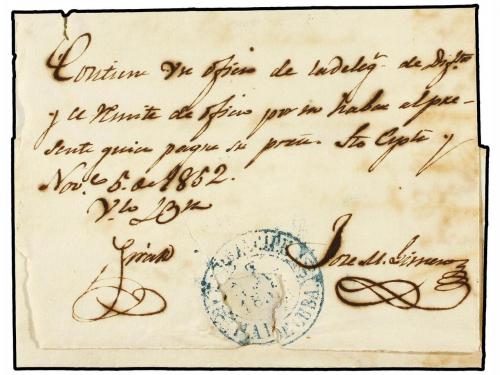 Contiene un oficio de la deleg. de Dto
y se remite de oficio por no haber al pre-
sente quien pague su porte. Sto Cipte y
Nove. 5. de 1852.
Vto Bno
Jose M. Gimenez
CUBA